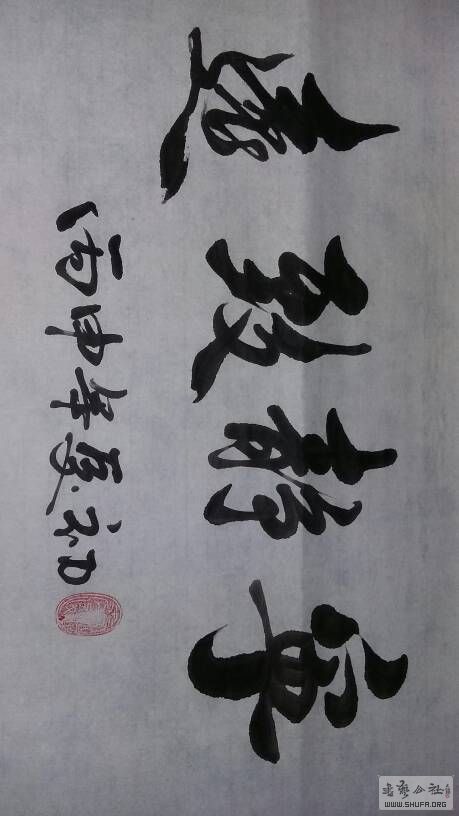 寧静致遠
丙申年夏初
书艺公社
WWW.SHUFA.ORG